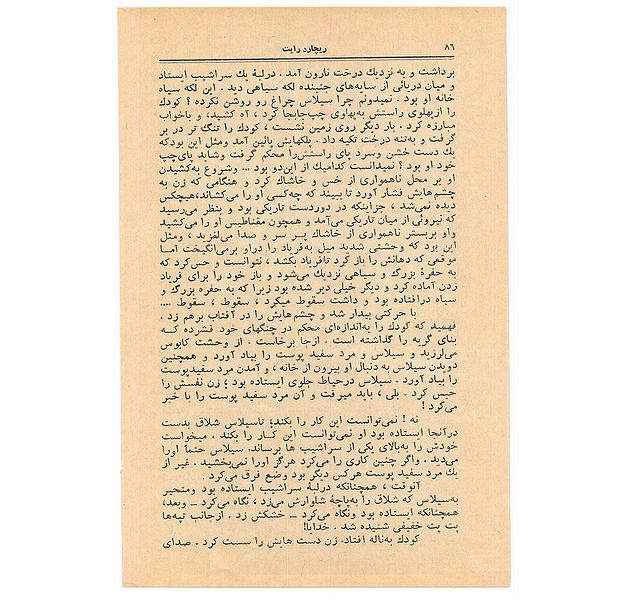 ۸۶ ریچارد رایت
برداشت و به نزدیك درخت نارون آمد . درلبهٔ یك سراشیب ایستاد
و میان دریائی از سایه‌های جنبنده لکه سیاهی دید . این لکه سیاه
خانه او بود . نمیدونم چرا سیلاس چراغ رو روشن نکرده ؟ کودك
را ازپهلوی راستش به‌پهلوی چپ‌جابجا کرد ، آه کشید، و باخواب
مبارزه کرد . بار دیگر روی زمین نشست ، کودك را تنگ تر در بر
گرفت و به‌تنه درخت تکیه داد . پلکهایش پائین آمد ومثل این بودکه
یك دست خشن وسرد پای راستش‌را محکم گرفت وشاید پای‌چپ
خود او بود ؟ نمیدانست کدامیك از این‌دو بود ... وشروع به‌کشیدن
او بر محل ناهمواری از خس و خاشاك کرد و هنگامی که زن به
چشم‌هایش فشار آورد تا ببیند که چه‌کسی او را می‌کشاند،هیچکس
دیده نمی‌شد ، جزاینکه در دوردست تاریکی بود و بنظر می‌رسید
که نیروئی از میان تاریکی می‌آمد و همچون مغناطیس او را می‌کشید
واو بربستر ناهمواری از خاشاك پــر سر و صدا می‌لغزید ، ومثل
این بود که وحشتی شدید میل به‌فریاد را دراو برمی‌انگیخت امـا
موقعی که دهانش را باز کرد تافریاد بکشد ، نتوانست و حس‌کرد که
به حفره بزرگ و سیاهی نزدیك می‌شود و باز خود را برای فریاد
زدن آماده کرد و دیگر خیلی دیر شده بود زیرا که به حفره بزرگ و
سیاه درافتاده بود و داشت سقوط میکرد ، سقوط ، سقوط ....
با حرکتی بیدار شد و چشم‌هایش را در آفتاب برهم زد .
فهمید که کودك را به‌اندازه‌ای محکم در چنگهای خود فشرده کــه
بنای گریه را گذاشته است . ازجا برخاست . از وحشت کابوس
می‌لرزید و سیلاس و مرد سفید پوست را بیاد آورد و همچنین
دویدن سیلاس به دنبال او بیرون از خانه ، و آمدن مرد سفیدپوست
را بیاد آورد . سیلاس درحیاط جلوی ایستاده بود ؛ زن نفسش را
حبس کرد . بلی ، باید میرفت و آن مرد سفید پوست را با خبر
می‌کرد !
نه ! نمی‌توانست این کار را بکند؛ تاسیلاس شلاق بدست
درآنجا ایستاده بود او نمی‌توانست این کــار را بکند . میخواست
خودش را به‌بالای یکی از سراشیب ها برساند. سیلاس حتماً اورا
می‌دید . واگر چنین کاری را می‌کرد هرگز اورا نمی‌بخشید . غیر از
یك مرد سفید پوست هرکس دیگر بود وضع فرق می‌کرد .
آنوقت ، همچنانکه درلبهٔ سراشیب ایستاده بود ومتحیر
به‌سیلاس که شلاق را به‌پاچهٔ شلوارش می‌زد ، نگاه می‌کرد ــ وبعد،
همچنانکه ایستاده بود ونگاه می‌کرد ــ خشکش زد . ازجانب تپه‌ها
پت پت خفیفی شنیده شد . خدایا!
کودك به‌ناله افتاد. زن دست هایش را سست کرد . صدای